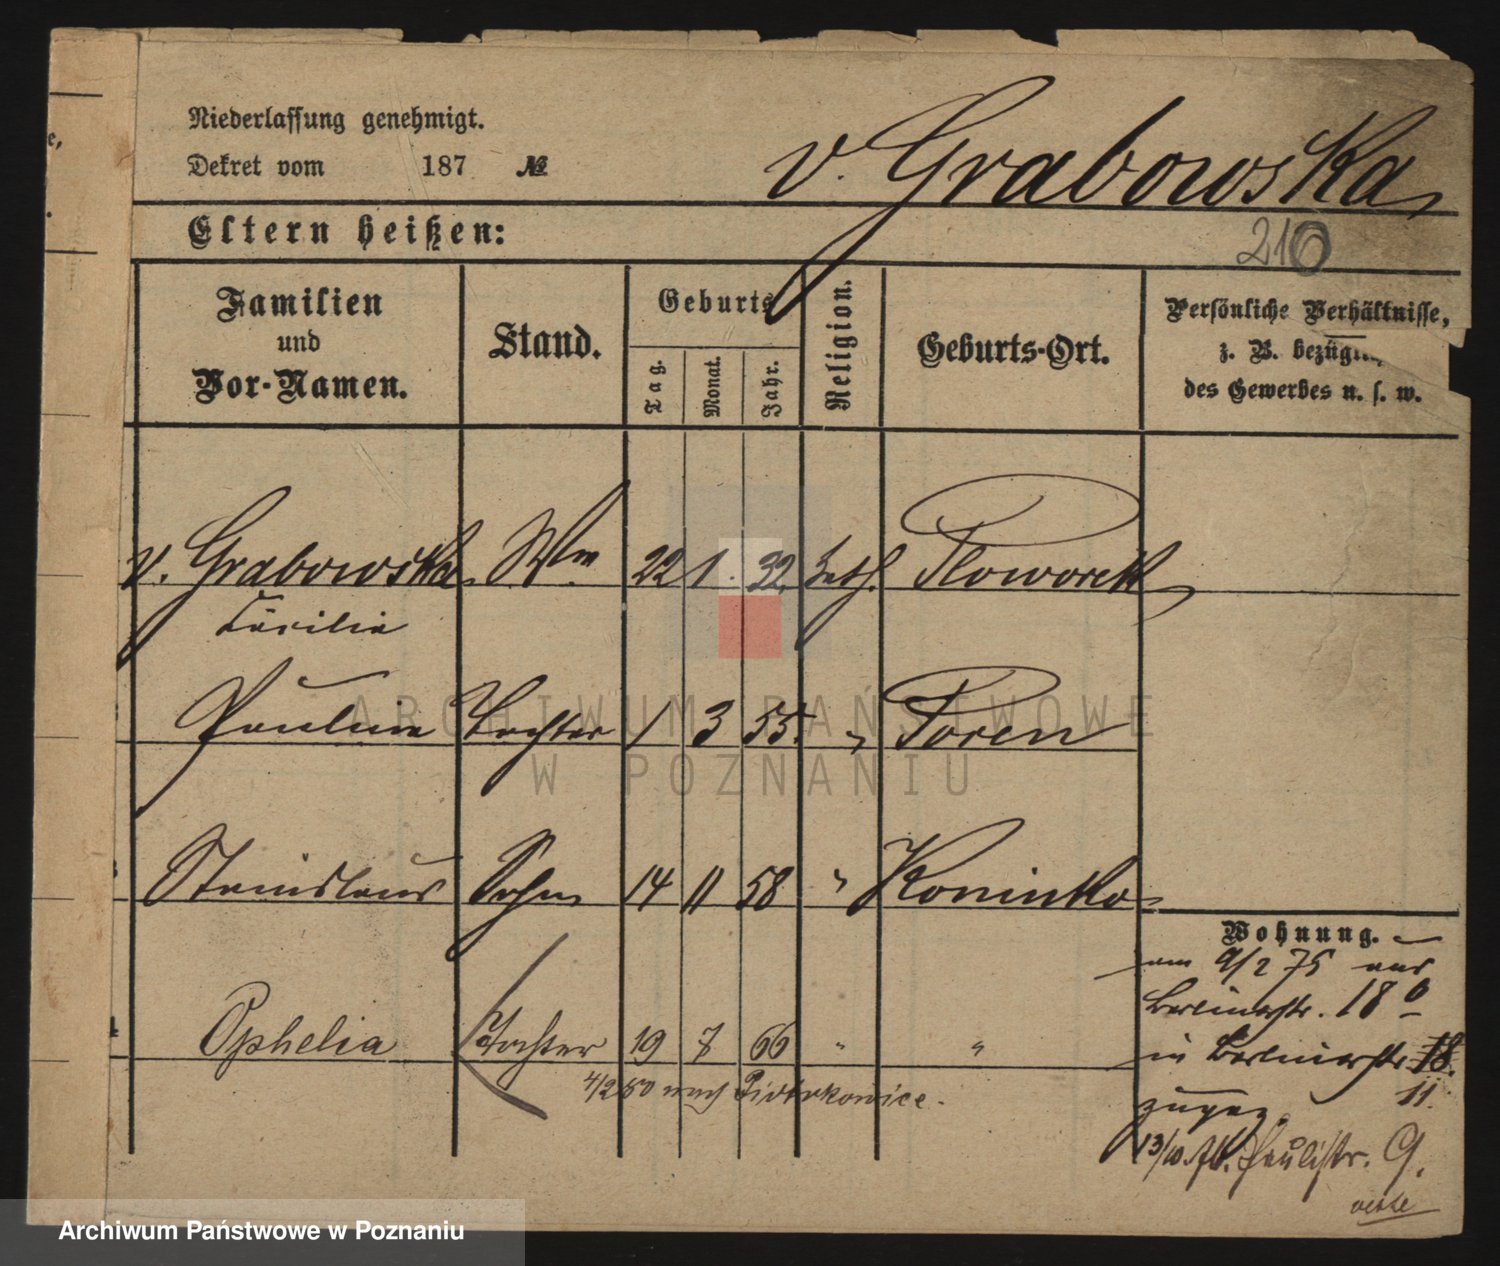 Niederlassung genehmigt.
Dekret vom 187 №
v. Grabowska
Eltern heißen:
210
Familien
und
Vor-Namen.
Stand.
Geburts
Tag.
Monat.
Jahr.
Religion.
Geburts-Ort.
Persönliche Verhältnisse,
z. B. bezügl.
des Gewerbes u. s. w.
v. Grabowska Ww 22 1. 32. kath.
Cäcilia
Paulina Tochter 1 3 55. " Posen
Stanislaus Sohn 14 11 58 " Koninko
Wohnung.
am 9/2 75 aus
Berlinerstr. 18 b
Ophelia Tochter 19 7 66 " "
in Berlinerstr. 18.
11.
4/2 80 nach Piotrkowice.
zugez.
13/10. 76. Paulistr. 9.
ARCHIWUM PAŃSTWOWE
W POZNANIU
Archiwum Państwowe w Poznaniu